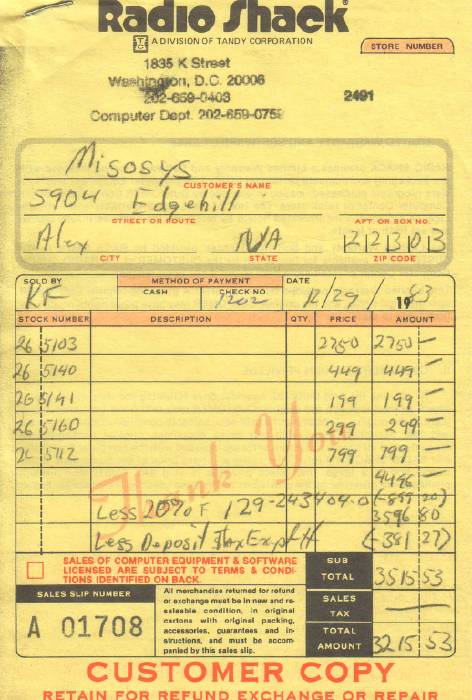 Radio Shack
A DIVISION OF TANDY CORPORATION
STORE NUMBER
1835 K Street
Washington, D.C. 20006
202-659-0403 2491
Computer Dept. 202-659-0752
Misosys
CUSTOMER'S NAME
5904 Edgehill
STREET OR ROUTE APT. OR BOX NO.
Alex VA 22303
CITY STATE ZIP CODE
SOLD BY METHOD OF PAYMENT DATE
CASH CHECK NO.
KF 1202 12/29/1983
STOCK NUMBER DESCRIPTION QTY. PRICE AMOUNT
26 5103 2750 2750 —
26 5140 449 449 —
26 5141 199 199 —
26 5160 299 299 —
26 5112 799 799 —
Thank You
4496 —
Less 20% F 129-243404-0 (-899 20)
3596 80
Less Deposit (-381 27)
SALES OF COMPUTER EQUIPMENT & SOFTWARE LICENSED ARE SUBJECT TO TERMS & CONDI-
TIONS IDENTIFIED ON BACK.
SUB TOTAL 3515 53
SALES SLIP NUMBER
A 01708
All merchandise returned for refund
or exchange must be in new and re-
saleable condition, in original
cartons with original packing,
accessories, guarantees and in-
structions, and must be accom-
panied by this sales slip.
SALES TAX —
TOTAL AMOUNT 3215 53
CUSTOMER COPY
RETAIN FOR REFUND EXCHANGE OR REPAIR